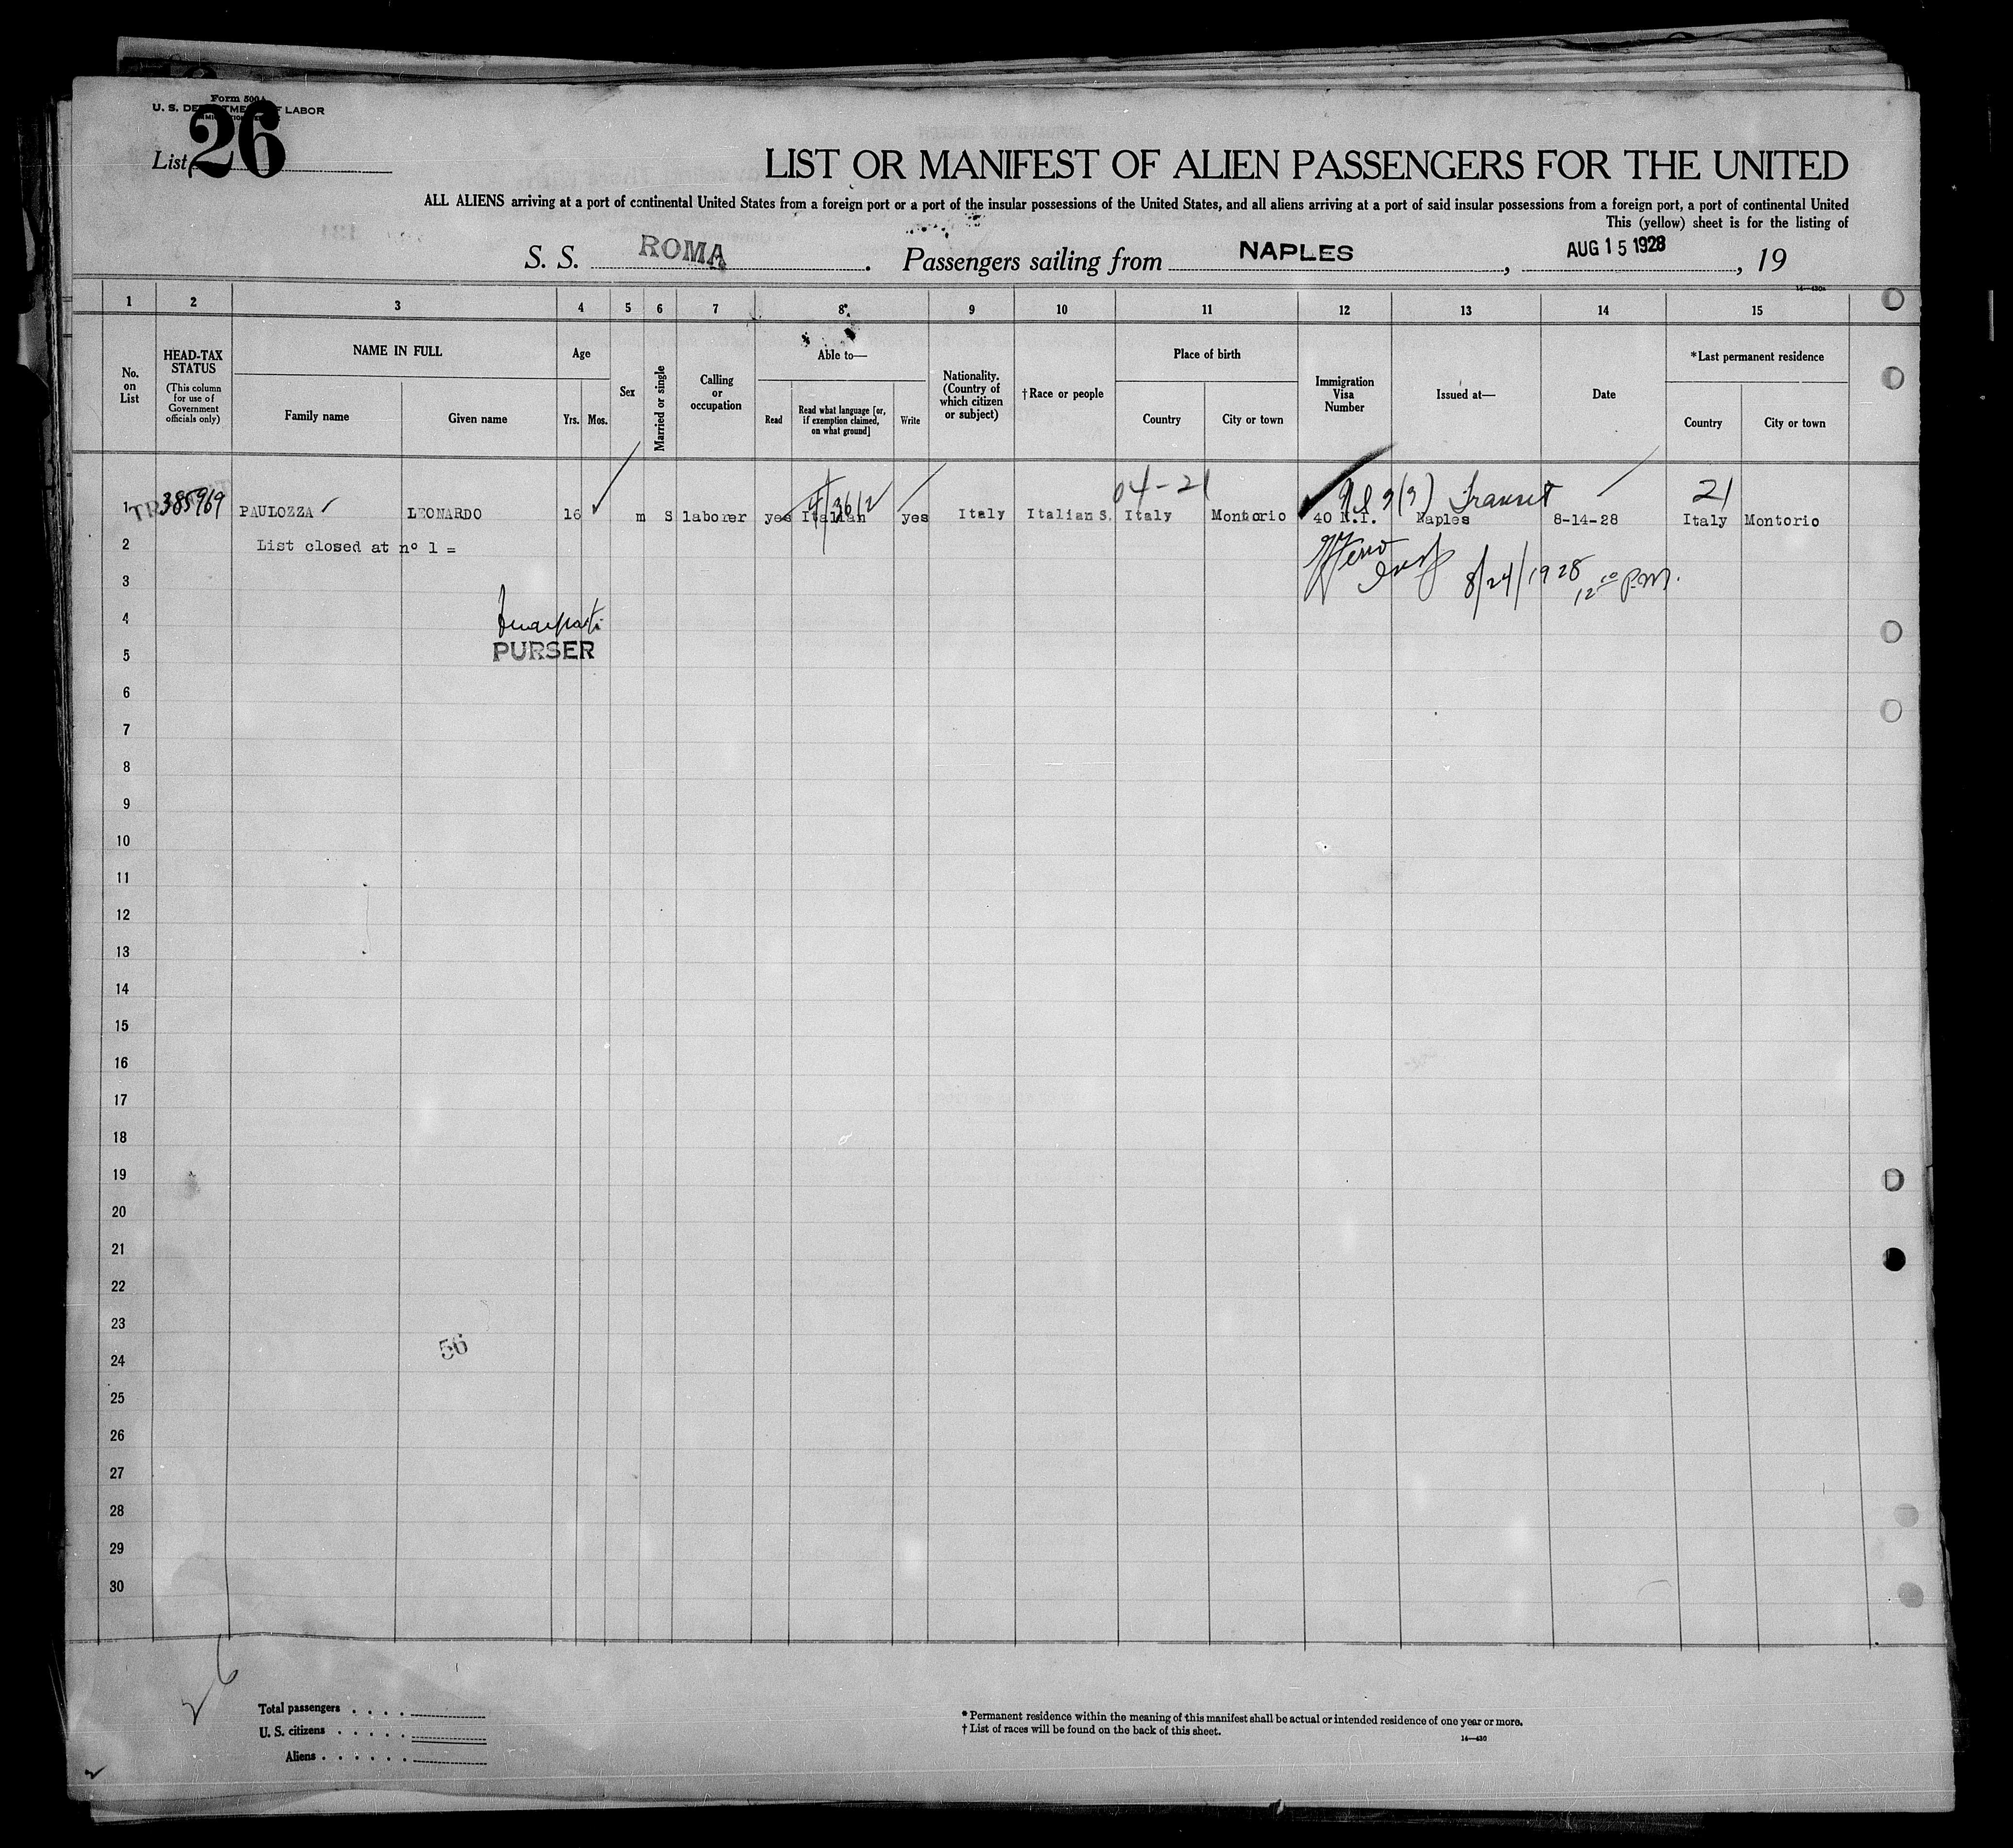 Form 500A
U. S. DEPARTMENT OF LABOR
List 26
LIST OR MANIFEST OF ALIEN PASSENGERS FOR THE UNITED
ALL ALIENS arriving at a port of continental United States from a foreign port or a port of the insular possessions of the United States, and all aliens arriving at a port of said insular possessions from a foreign port, a port of continental United
This (yellow) sheet is for the listing of
S. S. ROMA. Passengers sailing from NAPLES, AUG 15 1928, 19
1 2 3 4 5 6 7 8 9 10 11 12 13 14 15
No. on List
HEAD-TAX STATUS
(This column for use of Government officials only)
NAME IN FULL
Family name
Given name
Age
Yrs. Mos.
Sex
Married or single
Calling or occupation
Able to—
Read
Read what language [or, if exemption claimed, on what ground]
Write
Nationality. (Country of which citizen or subject)
†Race or people
Place of birth
Country
City or town
Immigration Visa Number
Issued at—
Date
*Last permanent residence
Country
City or town
04-21 Transit 21
1 TRANSIT 385969 PAULOZZA LEONARDO 16 m S laborer yes Italian yes Italy Italian S. Italy Montorio 40 N.I. Naples 8-14-28 Italy Montorio
2 List closed at nº 1 =
8/24/1928 12 10 P.M.
3
4
PURSER
5
6
7
8
9
10
11
12
13
14
15
16
17
18
19
20
21
22
23
56
24
25
26
27
28
29
30
26
Total passengers . . . .
U. S. citizens . . . . .
Aliens . . . . . .
* Permanent residence within the meaning of this manifest shall be actual or intended residence of one year or more.
† List of races will be found on the back of this sheet.
14—430